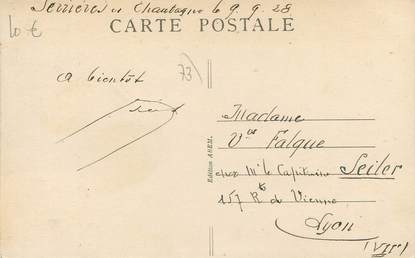 Serrières en Chautagne le 9.9.28
CARTE POSTALE
10 €
73)
a bientôt
Madame
Vve Falque
chez Mr le Capitaine Seiler
157 Rte de Vienne
Lyon
(VIIe)